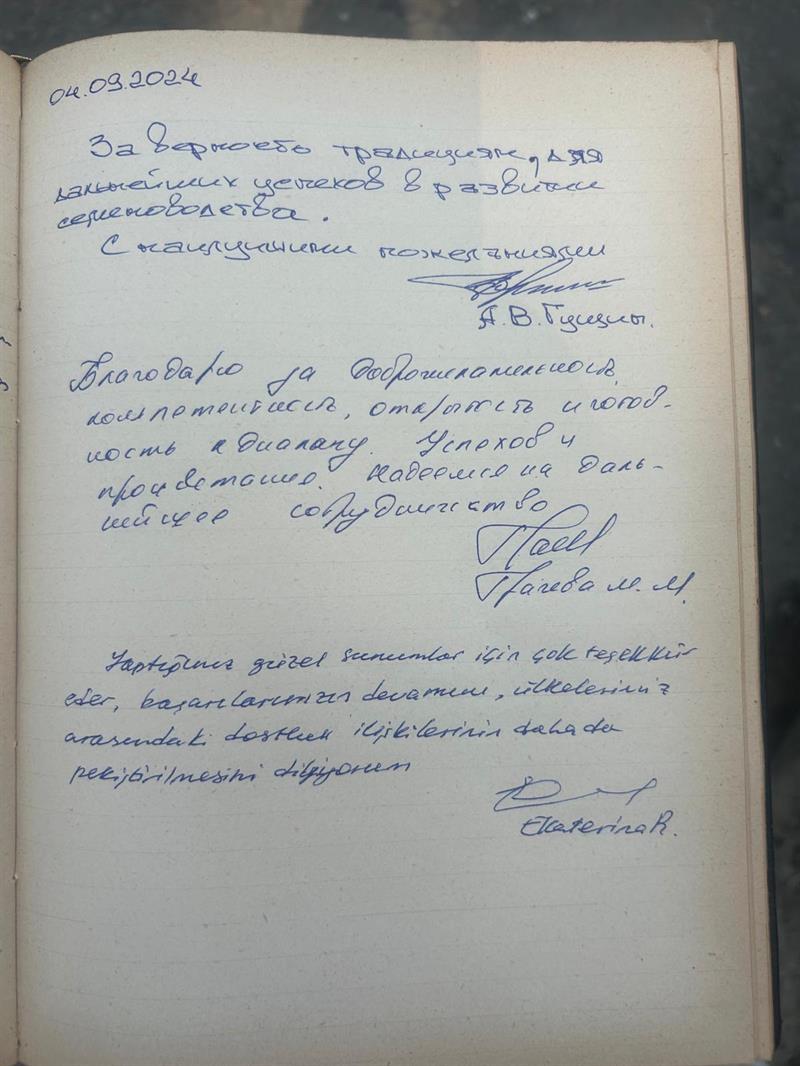 04.09.2024
За верность традициям, для
дальнейших успехов в развитии
семеноводства.
С наилучшими пожеланиями
А.В.
Благодарю за доброжелательность,
компетентность, открытость и готов-
ность к диалогу. Успехов и
процветания. Надеемся на даль-
нейшее сотрудничество
М.М.
Yaptığınız güzel sunumlar için çok teşekkür
eder, başarılarımızın devamını, ülkelerimiz
arasındaki dostluk ilişkilerinin daha da
pekiştirilmesini diliyorum
Ekaterina R.